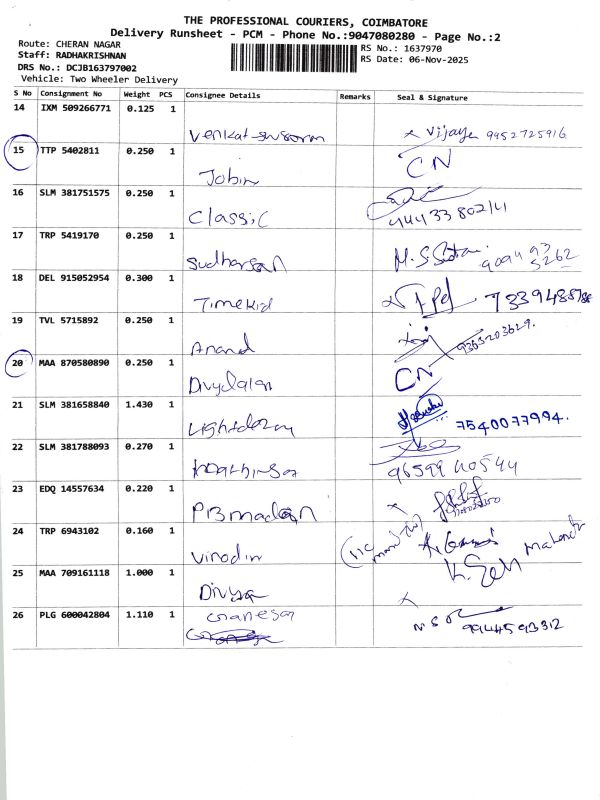 THE PROFESSIONAL COURIERS, COIMBATORE
Delivery Runsheet - PCM - Phone No.:9047080280 - Page No.:2
Route: CHERAN NAGAR
Staff: RADHAKRISHNAN
DRS No.: DCJB163797002
Vehicle: Two Wheeler Delivery
RS No.: 1637970
RS Date: 06-Nov-2025
S No Consignment No Weight PCS Consignee Details Remarks Seal & Signature
14 IXM 509266771 0.125 1
x Vijaya 9952725916
15 TTP 5402811 0.250 1
Jobin CN
16 SLM 381751575 0.250 1
Classic
17 TRP 5419170 0.250 1
Sudharsan
18 DEL 915052954 0.300 1
Timekid
19 TVL 5715892 0.250 1
Anand 9363203629.
20 MAA 870580890 0.250 1
CN
21 SLM 381658840 1.430 1
7540077994.
22 SLM 381788093 0.270 1
9659940544
23 EDQ 14557634 0.220 1
24 TRP 6943102 0.160 1
Vinodin
25 MAA 709161118 1.000 1
Divya
26 PLG 600042804 1.110 1
Ganesan
9944593312